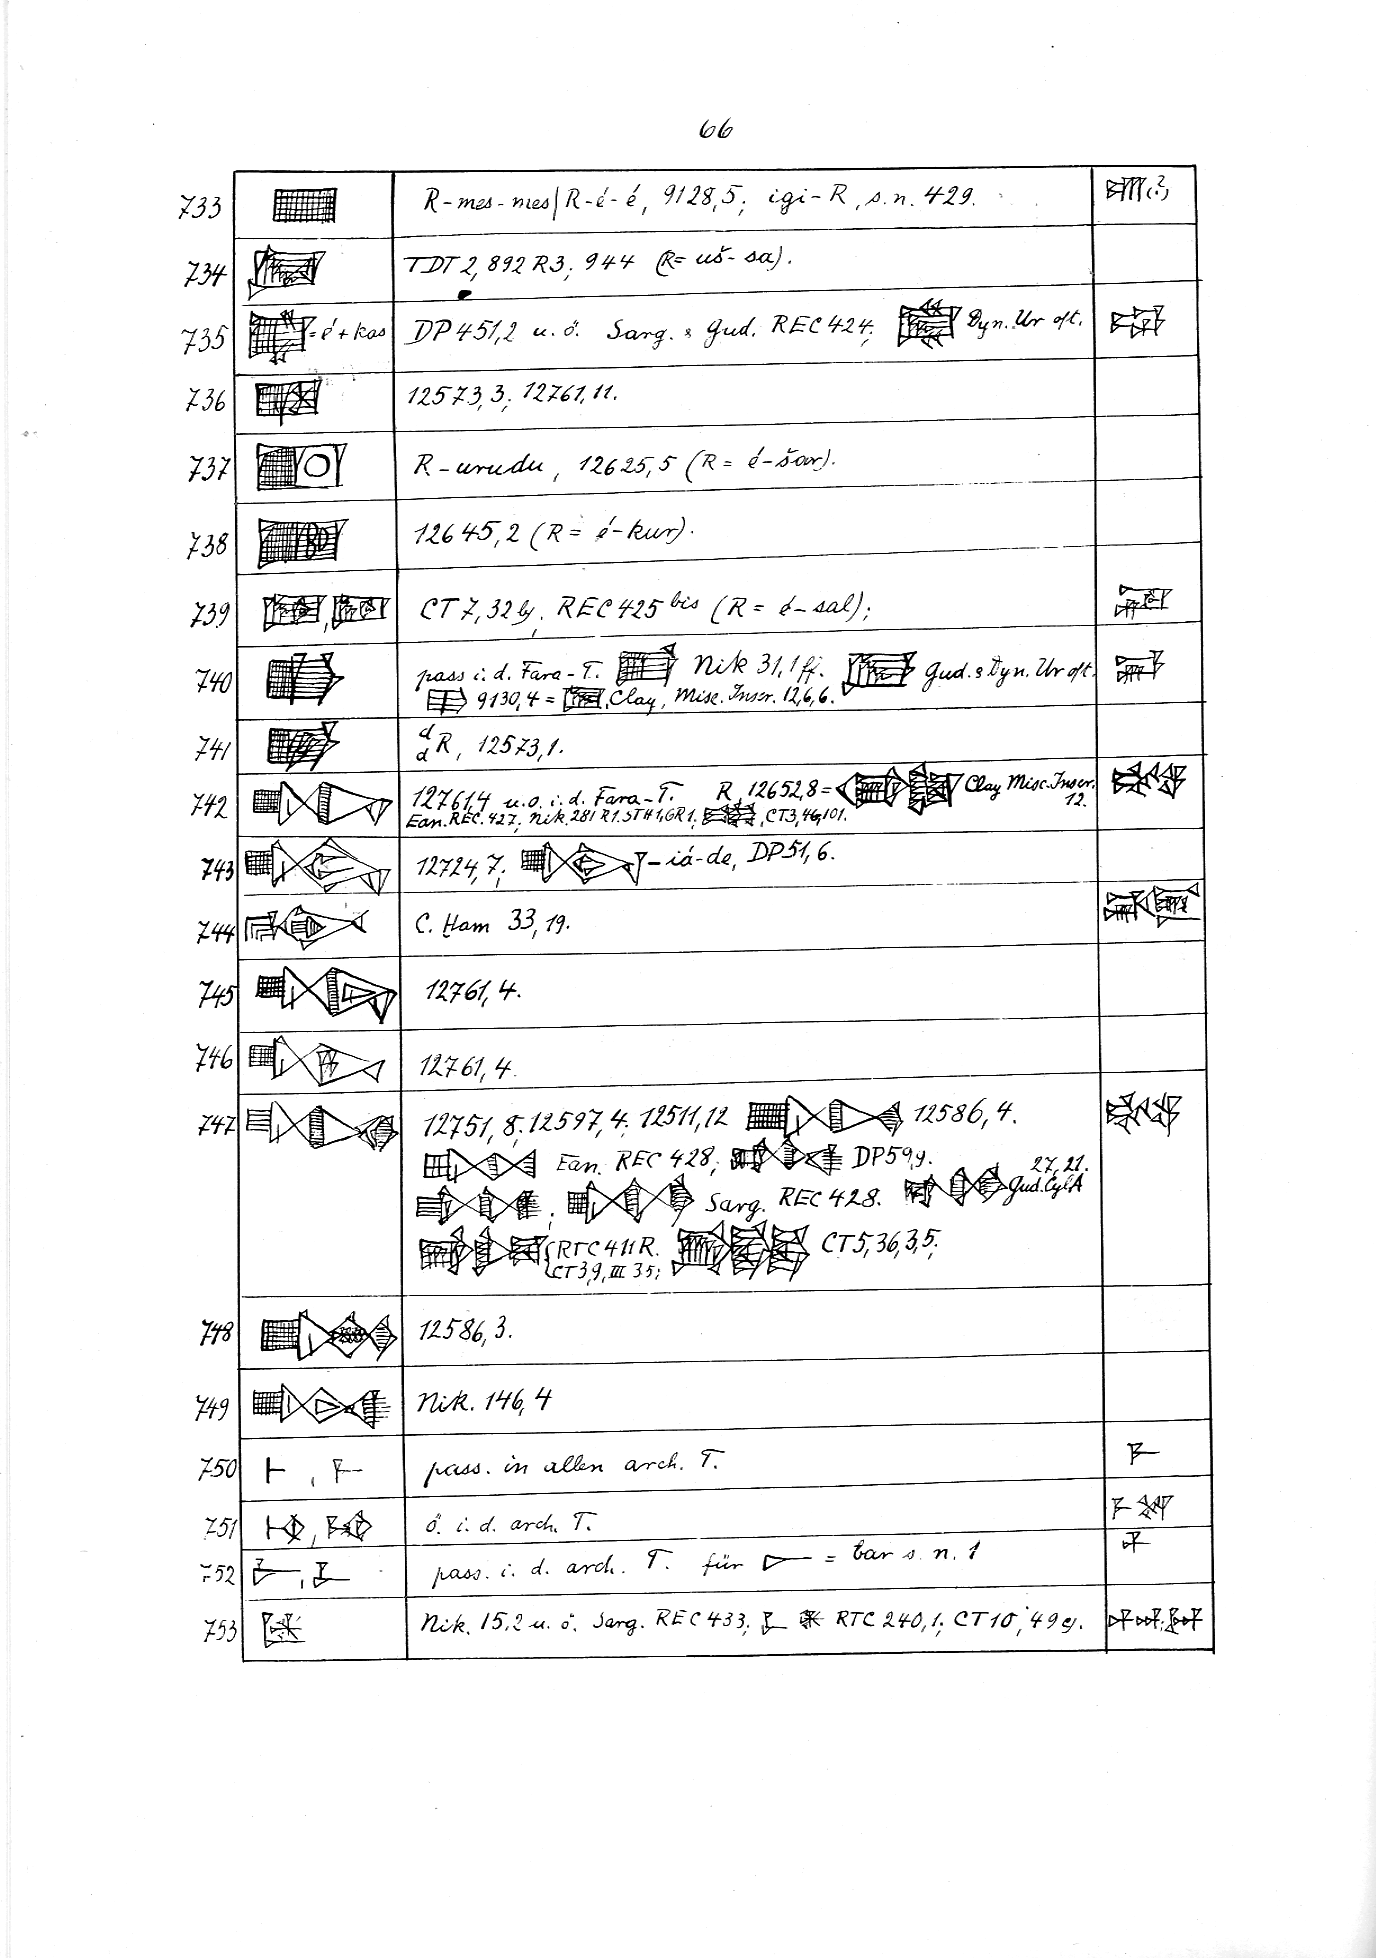 66
733 R-mes-mes/R-é-é, 9128,5; igi-R, s.n. 429. (?)
734 TDT 2, 892 R3; 944 (R= uš-sa).
735 =é+kas DP 451,2 u. ö. Sarg. & Gud. REC 424; Dyn. Ur oft.
736 12573,3; 12761,11.
737 R-urudu, 12625,5 (R= é-šar).
738 12645,2 (R= é-kur).
739 , CT 7, 32 REC 425 bis (R= é-sal);
740 pass i. d. Fara-T. Nik 31,1 ff. Gud. & Dyn. Ur oft.
9130,4 = , Clay, Misc. Inscr. 12,6,6.
741 d d R, 12573,1.
742 12761,4 u. o. i. d. Fara-T. R, 12652,8 = Clay Misc. Inscr. 12.
Ean. REC. 427; Nik. 281 R1. STH 1,6 R1; , CT3,46,101.
743 12724,7; -iá-de, DP 51,6.
744 C. Ḫam 33,19.
745 12761,4.
746 12761,4.
747 12751,8; 12597,4; 12511,12 12586,4.
Ean. REC 428; DP 59,9.
; Sarg. REC 428. Gud. Cyl A 27,21.
RTC 411 R. CT 5,36,3,5;
CT 3,9, III 35;
748 12586,3.
749 Nik. 146,4
750 , pass. in allen arch. T.
751 , ö. i. d. arch. T.
752 , pass. i. d. arch. T. für = bar s. n. 1
753 Nik. 15,2 u. ö. Sarg. REC 433; RTC 240,1; CT 10, 49